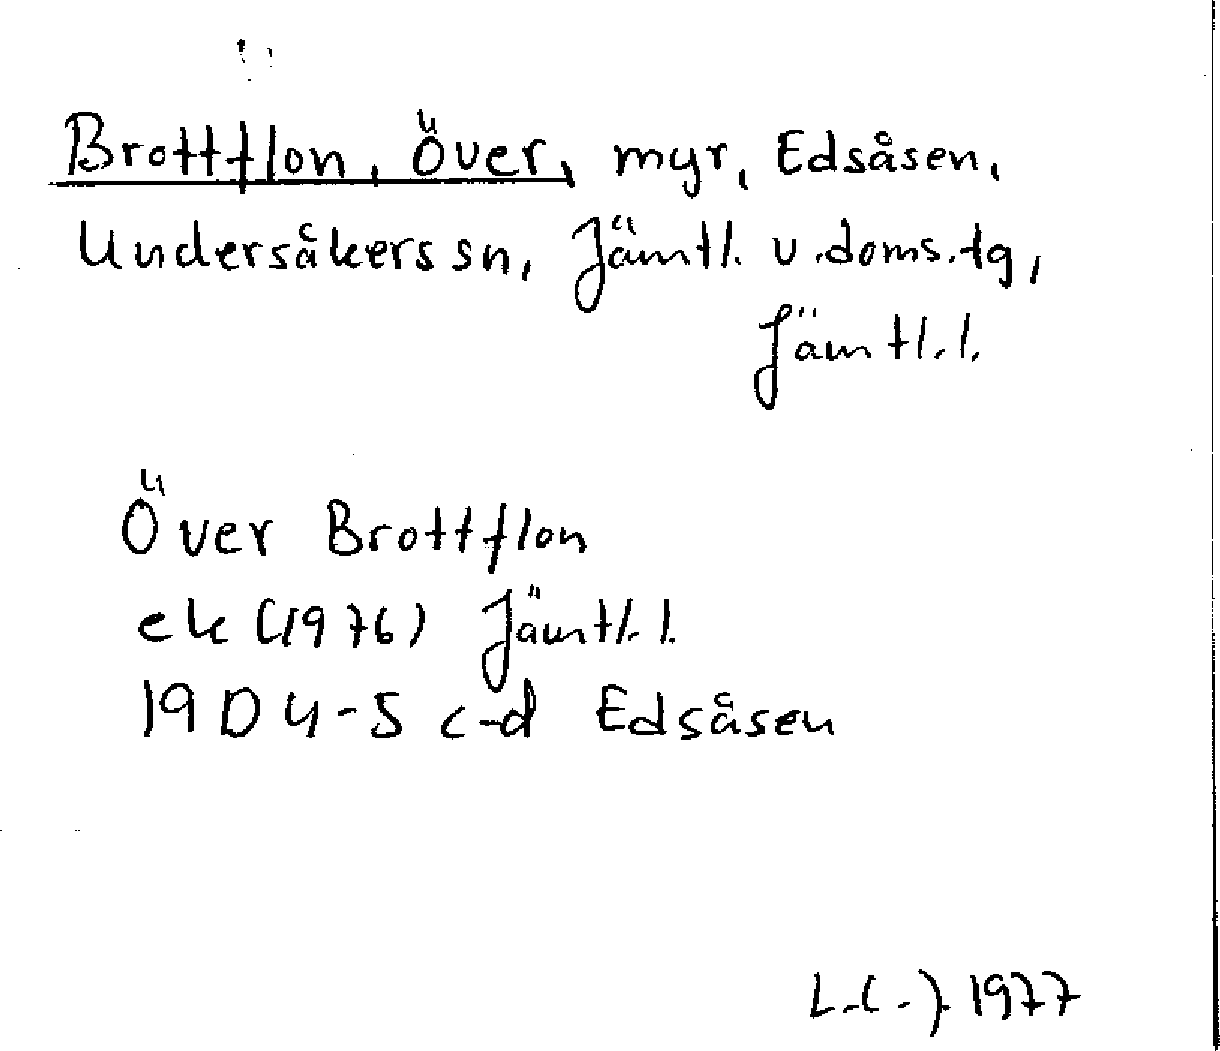 Brottflon, Över, myr, Edsåsen,
Undersåkers sn, Jämtl. v. doms. tg,
Jämtl. l.
Över Brottflon
ek (1976) Jämtl. l.
19 D 4-5 c-d Edsåsen
1977